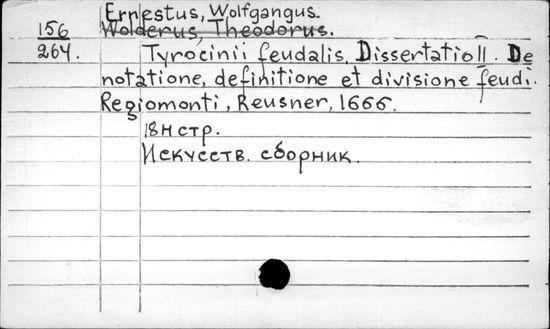 Ernestus, Wolfgangus.
156 Wolderus, Theodorus.
264. Tyrocinii feudalis, Dissertatio II. De
notatione, definitione et divisione feudi.
Regiomonti, Reusner, 1666.
18н стр.
Искусств. сборник.